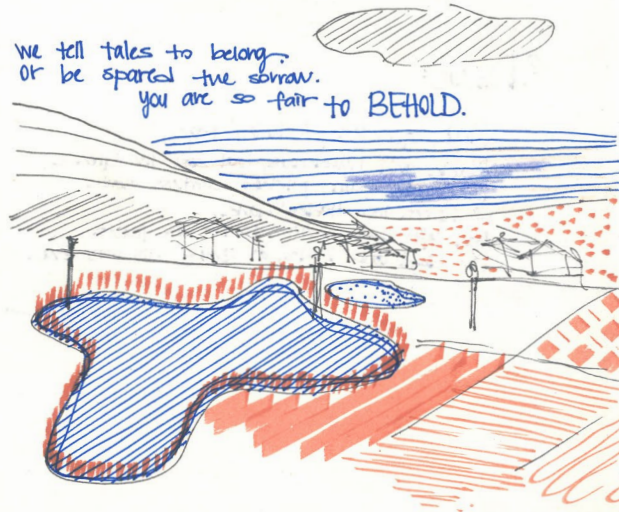 we tell tales to belong.
or be spared the sorrow.
you are so fair to BEHOLD.